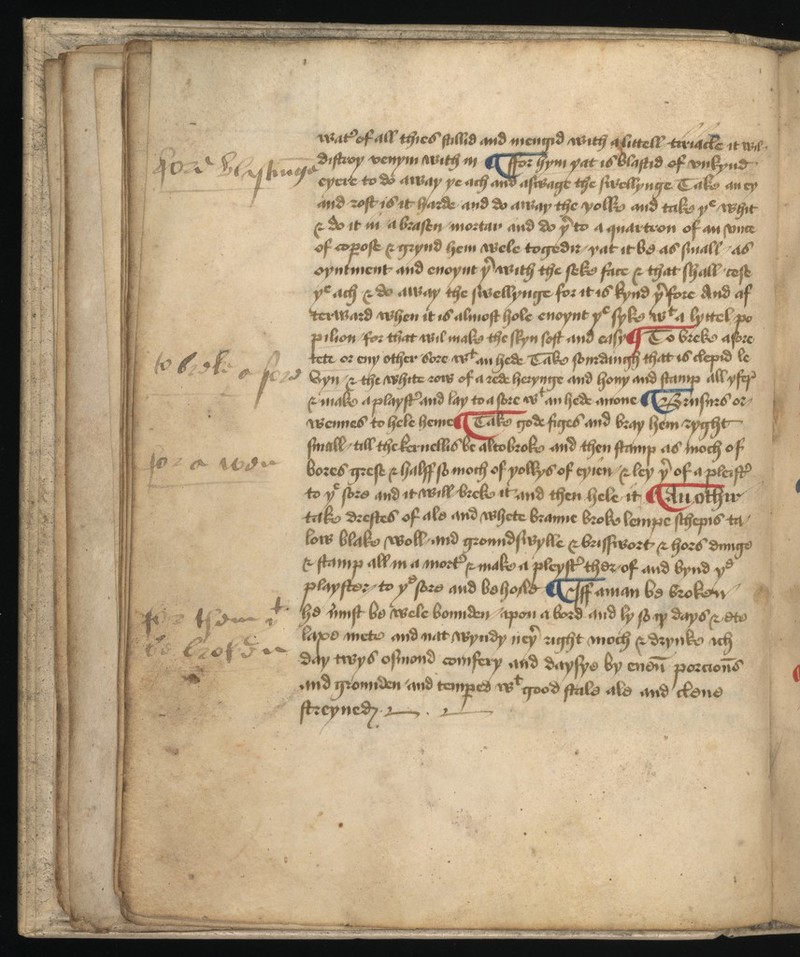 watᵉ of all thies stillid and mengid with a litell triacle it wil
distroy venym with in ¶ ffor hym yat is blastid of vnkynd
fore blastinge
eyere to do away ye ach and aswage the swellynge Take an ey
and rost is it harde and do away the yolke and take yᵉ whit
& do it in a brasen mortar and do yʳ to a quartron of an vnce
of copose & grynd hem wele togedir yat it be as small as
oyntment and enoynt yʳ with the seke face & that shall cese
yᵉ ach & do away the swellynge for it is kynd yʳfore And af
terward when it is almost hole enoynt yᵉ syke wᵗ a lyttel po
pilion for that wil make the skyn soft and easy ¶ To breke a fore
to breke a sore
tete or eny other sore wᵗ an hede Take that is clepid le
vyn & the white row of a rede herynge and hony and stamp all yfeʳ
& make a playstʳ and lay to a sore wᵗ an hede anone ¶ Brusurs or
wennes to hele heme ¶ Take gode figes and bray hem ryght
small till the kernellis be altobroke and then stamp as moch of
for a wen
bores grese & halff so moch of yollys of eyien & ley yʳ of a pleistʳ
to yᵉ sore and it will breke it and then hele it ¶ An othir
take drestes of ale and whete branne broke lempe schepis ta
low blake woll and groundswylle & brisswort & hors dunge
& stamp all in a mortʳ & make a pleystʳ ther of and bynd yᵉ
playster to yᵉ sore and be hole ¶ Iff a man be broken
he must be wele bounden apon a bord and ly so ix days & ete
for them yᵗ
be broken
laxe mete and nat wyndy neyʳ right moch & drynke ich
day twys osmond comfery and daysye by euen porcions
and grounden and temped wᵗ good stale ale and clene
streyned